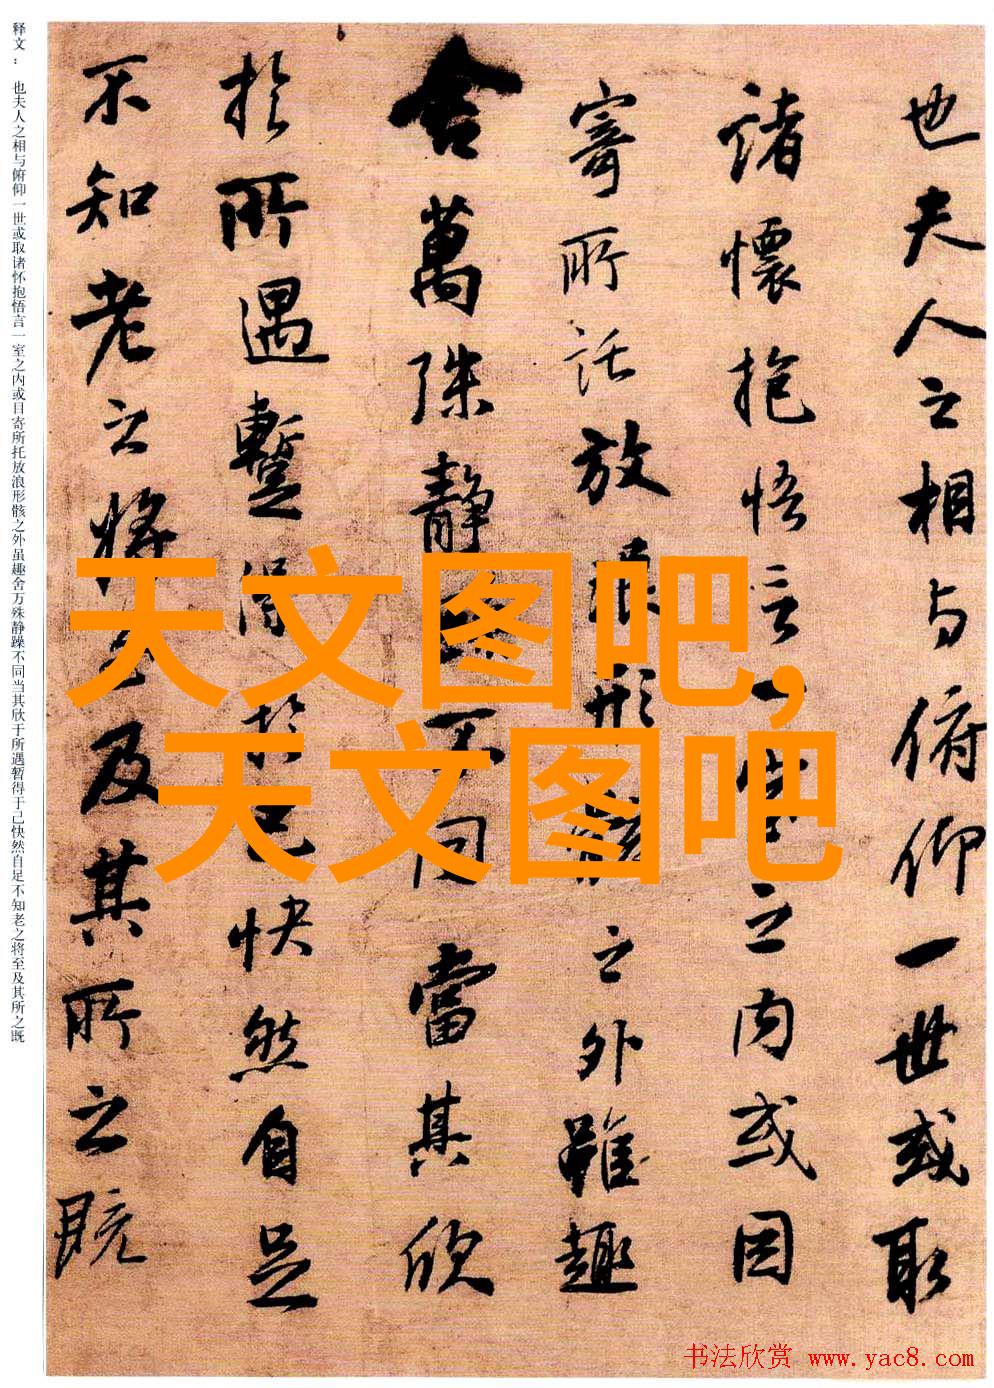 也夫人之相与俯仰一世或取
諸懷抱悟言一室之内或因
寄所託放浪形骸之外雖趣
舍萬殊靜躁不同當其欣
於所遇蹔得於己快然自足
不知老之將至及其所之既
释文：也夫人之相与俯仰一世或取诸怀抱悟言一室之内或目寄所托放浪形骸之外虽趣舍万殊静躁不同当其欣于所遇暂得于己快然自足不知老之将至及其所之既
天文图吧,
天文图吧
书法欣赏 www.yac8.com